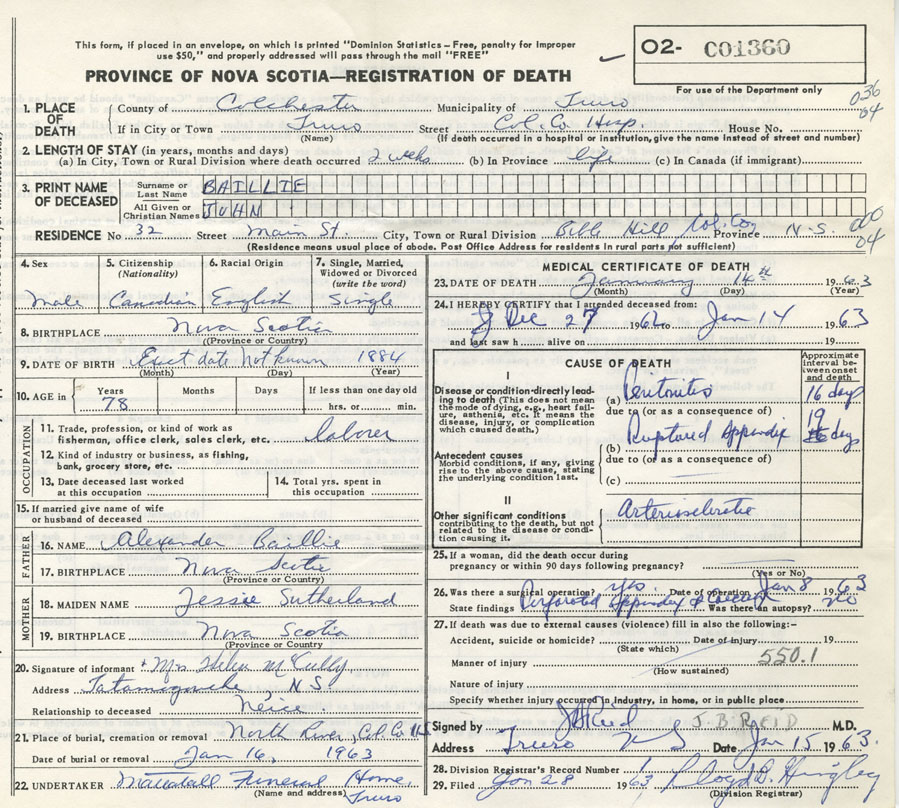 This form, if placed in an envelope, on which is printed "Dominion Statistics – Free, penalty for improper
use $50," and properly addressed will pass through the mail "FREE"
O2- C01360
For use of the Department only
PROVINCE OF NOVA SCOTIA—REGISTRATION OF DEATH
036
04
1. PLACE OF DEATH
County of Colchester Municipality of Truro
If in City or Town Truro Street Col. Co. Hosp. House No.
(Name) (If death occurred in a hospital or institution, give the name instead of street and number)
2. LENGTH OF STAY (in years, months and days)
(a) In City, Town or Rural Division where death occurred 2 weeks (b) In Province life (c) In Canada (if immigrant)
3. PRINT NAME OF DECEASED
Surname or Last Name BAILLIE
All Given or Christian Names JOHN
000
04
RESIDENCE No 32 Street Main St. City, Town or Rural Division Bible Hill Col. Co. Province N.S.
(Residence means usual place of abode. Post Office Address for residents in rural parts not sufficient)
4. Sex
Male
5. Citizenship
(Nationality)
Canadian
6. Racial Origin
English
7. Single, Married,
Widowed or Divorced
(write the word)
Single
8. BIRTHPLACE Nova Scotia
((Province or Country)
9. DATE OF BIRTH Exact date Not known 1884
(Month) (Day) (Year)
10. AGE in
Years Months Days If less than one day old
78 hrs. or min.
OCCUPATION
11. Trade, profession, or kind of work as
fisherman, office clerk, sales clerk, etc. laborer
12. Kind of industry or business, as fishing,
bank, grocery store, etc.
13. Date deceased last worked
at this occupation
14. Total yrs. spent in
this occupation
15. If married give name of wife
or husband of deceased
FATHER
16. NAME Alexander Baillie
17. BIRTHPLACE Nova Scotia
(Province or Country)
MOTHER
18. MAIDEN NAME Jessie Sutherland
19. BIRTHPLACE Nova Scotia
(Province or Country)
20. Signature of informant Mrs Helen McCully
Address Tatamagouche, N.S.
Relationship to deceased Neice
21. Place of burial, cremation or removal North River, Col. Co. N.S.
Date of burial or removal Jan 16, 1963
22. UNDERTAKER Mattatall Funeral Home,
(Name and address) Truro
MEDICAL CERTIFICATE OF DEATH
23. DATE OF DEATH January 14th 1963
(Month) (Day) (Year)
24. I HEREBY CERTIFY that I attended deceased from:
Dec 27 1962 to Jan 14 1963
and last saw h alive on 19
CAUSE OF DEATH
Approximate
interval be-
tween onset
and death
I
Disease or condition directly lead-
ing to death (This does not mean
the mode of dying, e.g., heart fail-
ure, asthenia, etc. It means the
disease, injury, or complication
which caused death.)
(a) Peritonitis 16 days
due to (or as a consequence of)
(b) Ruptured Appendix 19 days
due to (or as a consequence of)
(c)
Antecedent causes
Morbid conditions, if any, giving
rise to the above cause, stating
the underlying condition last.
II
Other significant conditions
contributing to the death, but not
related to the disease or condi-
tion causing it.
Arteriosclerotic
25. If a woman, did the death occur during
pregnancy or within 90 days following pregnancy?
(Yes or No)
26. Was there a surgical operation? yes. Date of operation Jan 8 1963
State findings Perforated Appendix & abscess Was there an autopsy? no
27. If death was due to external causes (violence) fill in also the following:–
Accident, suicide or homicide? Date of injury 19
(State which)
Manner of injury 550.1
(How sustained)
Nature of injury
Specify whether injury occurred in industry, in home, or in public place
Signed by JB Reid J B REID M.D.
Address Truro N S Date Jan 15 1963.
28. Division Registrar's Record Number 1
29. Filed Jan 28 1963 Lloyd D. Hingley
(Division Registrar)